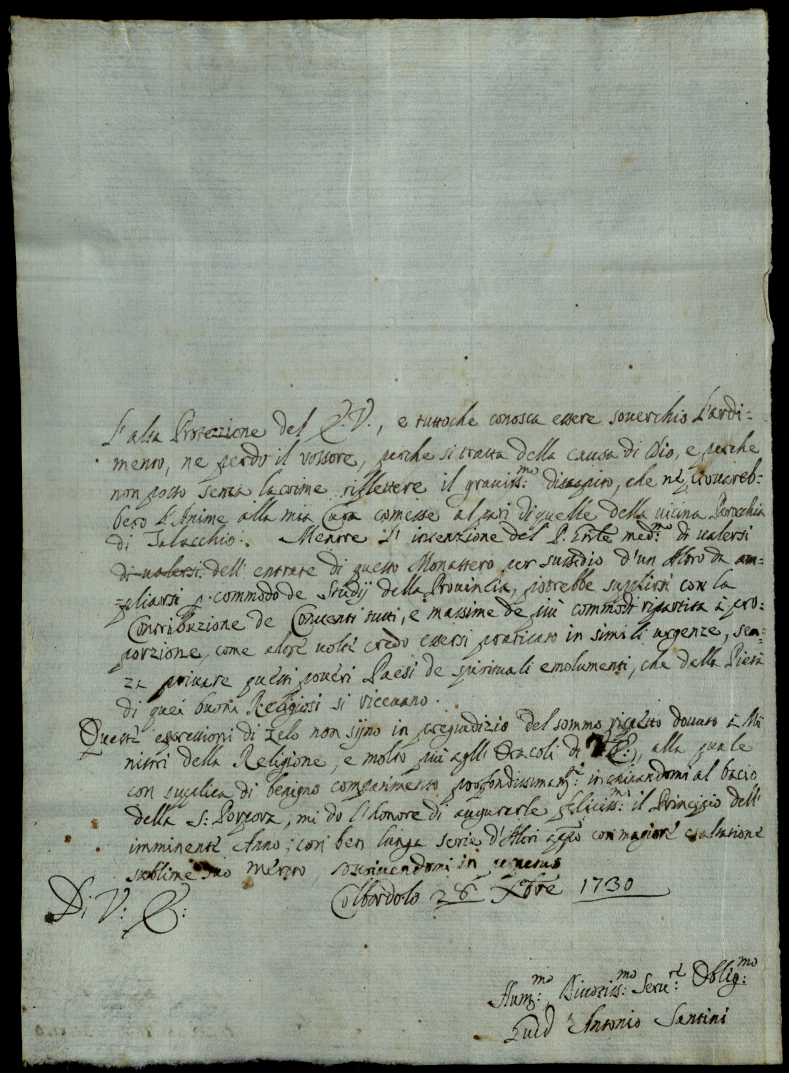 l'alta Protezzione del E: V:, e tuttoche conosca essere soverchio l'ardi=
mento, ne perdo il rossore, perche si tratta della causa di Dio, e perche
non posso senza lacrime riflettere il graviss:mo discapito, che ne provereb=
bero l'Anime alla mia Cura comesse al pari di quelle della vicina Parochia
di Talacchio. Mentre l'intenzione del P. med:mo di valersi
di valersi dell'entrate di questo Monastero per sussidio d'un Altro da am=
=pliarsi p. commodo de Studij della Provincia, potrebbe supplirsi con la
Contribuzione de Conventi tutti, e massime de più commodi ripartita à pro:
porzione, come altre volte credo essersi praticato in simili urgenze, sen=
za privare questi poveri Paesi de spirituali emolumenti, che dalla Pietà
di quei buoni Religiosi si ricevano.
Queste espressioni di zelo non sijno in pregiudizio del sommo rispetto dovuto à Mi
nistri della Religione, e molto più agli Oracoli di V: E:, alla quale
con supplica di benigno compatimento profondissimam:te inchinandomi al bacio
della S: Porpora, mi do l'honore di augurarle feliciss:mi il Principio dell'
imminente Anno, con ben lunga serie d'Altri con magiore esaltatione
sublime suo merito, soscrivendomi in
Di V: E:
Colbordolo 28 Xbre 1730
Hum:mo Divotiss:mo Serv:re Oblig:mo
Antonio Santini